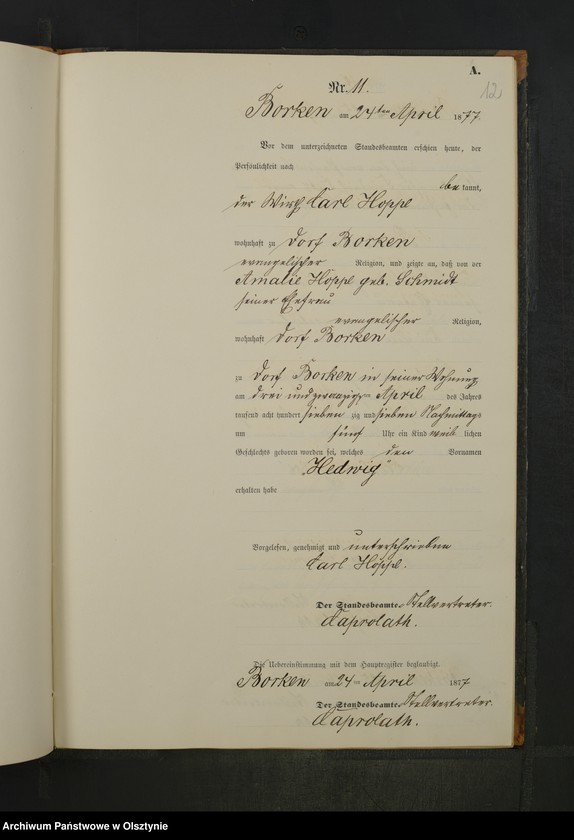 A.
12
Nr. 11.
Borken am 24ten April 1877.
Vor dem unterzeichneten Standesbeamten erschien heute, der
Persönlichkeit nach
bekannt,
der Wirth Carl Hoppe
wohnhaft zu Dorf Borken
evangelischer Religion, und zeigte an, daß von der
Amalie Hoppe geb. Schmidt
seiner Ehefrau
evangelischer Religion,
wohnhaft Dorf Borken
zu Dorf Borken in seiner Wohnung
am drei und zwanzigsten April des Jahres
tausend acht hundert siebenzig und sieben Nachmittags
um fünf Uhr ein Kind weiblichen
Geschlechts geboren worden sei, welches den Vornamen
„Hedwig"
erhalten habe
Vorgelesen, genehmigt und unterschrieben
Carl Hoppe.
Der Standesbeamte. Stellvertreter.
Saprolath.
Die Uebereinstimmung mit dem Hauptregister beglaubigt.
Borken am 24ten April 1877
Der Standesbeamte. Stellvertreter.
Saprolath.
Archiwum Państwowe w Olsztynie